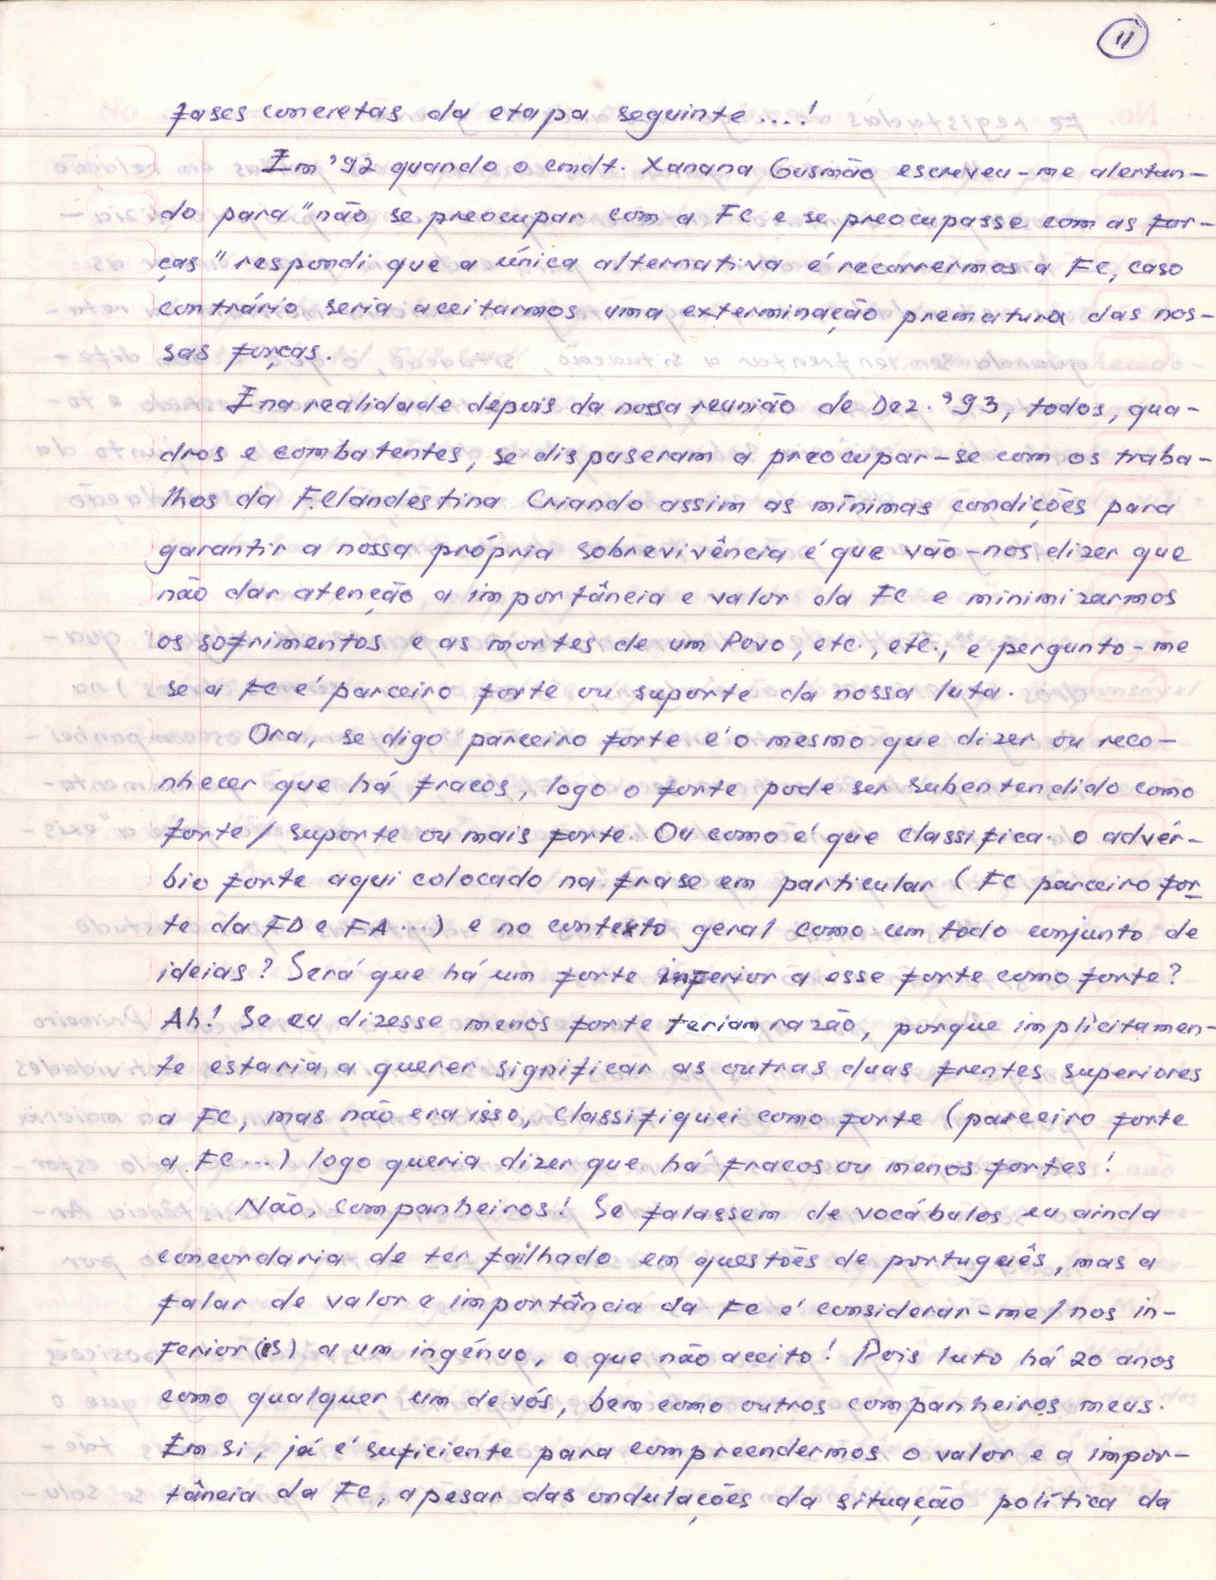 11
fases concretas da etapa seguinte....!
Em '92 quando o cmdt. Xanana Gusmão escreveu-me alertan-
do para "não se preocupar com a FC e se preocupasse com as for-
ças" respondi que a única alternativa é recorrermos a FC, caso
contrário seria aceitarmos uma exterminação prematura das nos-
sas forças.
E na realidade depois da nossa reunião de Dez. '93, todos, qua-
dros e combatentes, se dispuseram a preocupar-se com os traba-
lhos da F.Clandestina criando assim as mínimas condições para
garantir a nossa própria sobrevivência é que vão-nos dizer que
não dar atenção a importância e valor da FC e minimizarmos
os sofrimentos e as mortes de um Povo, etc., etc., e pergunto-me
se a FC é parceiro forte ou suporte da nossa luta.
Ora, se digo parceiro forte é o mesmo que dizer ou reco-
nhecer que há fracos, logo o forte pode ser subentendido como
forte/suporte ou mais forte. Ou como é que classifica o advér-
bio forte aqui colocado na frase em particular (FC parceiro for
te da FD e FA...) e no contexto geral como um todo conjunto de
ideias? Será que há um forte inferior a esse forte como forte?
Ah! Se eu dizesse menos forte teriam razão, porque implìcitamen-
te estaria a querer significar as outras duas frentes superiores
a FC, mas não era isso, classifiquei como forte (parceiro forte
a FC...) logo queria dizer que há fracos ou menos fortes!
Não, companheiros! Se falassem de vocábulos eu ainda
concordaria de ter failhado em questões de portuguēs, mas a
falar de valor e importância da FC é considerar-me/nos in-
ferior(es) a um ingénuo, o que não aceito! Pois luto há 20 anos
como qualquer um de vós, bem como outros companheiros meus.
Em si, já é suficiente para compreendermos o valor e a impor-
tância da FC, apesar das ondulações da situação política da